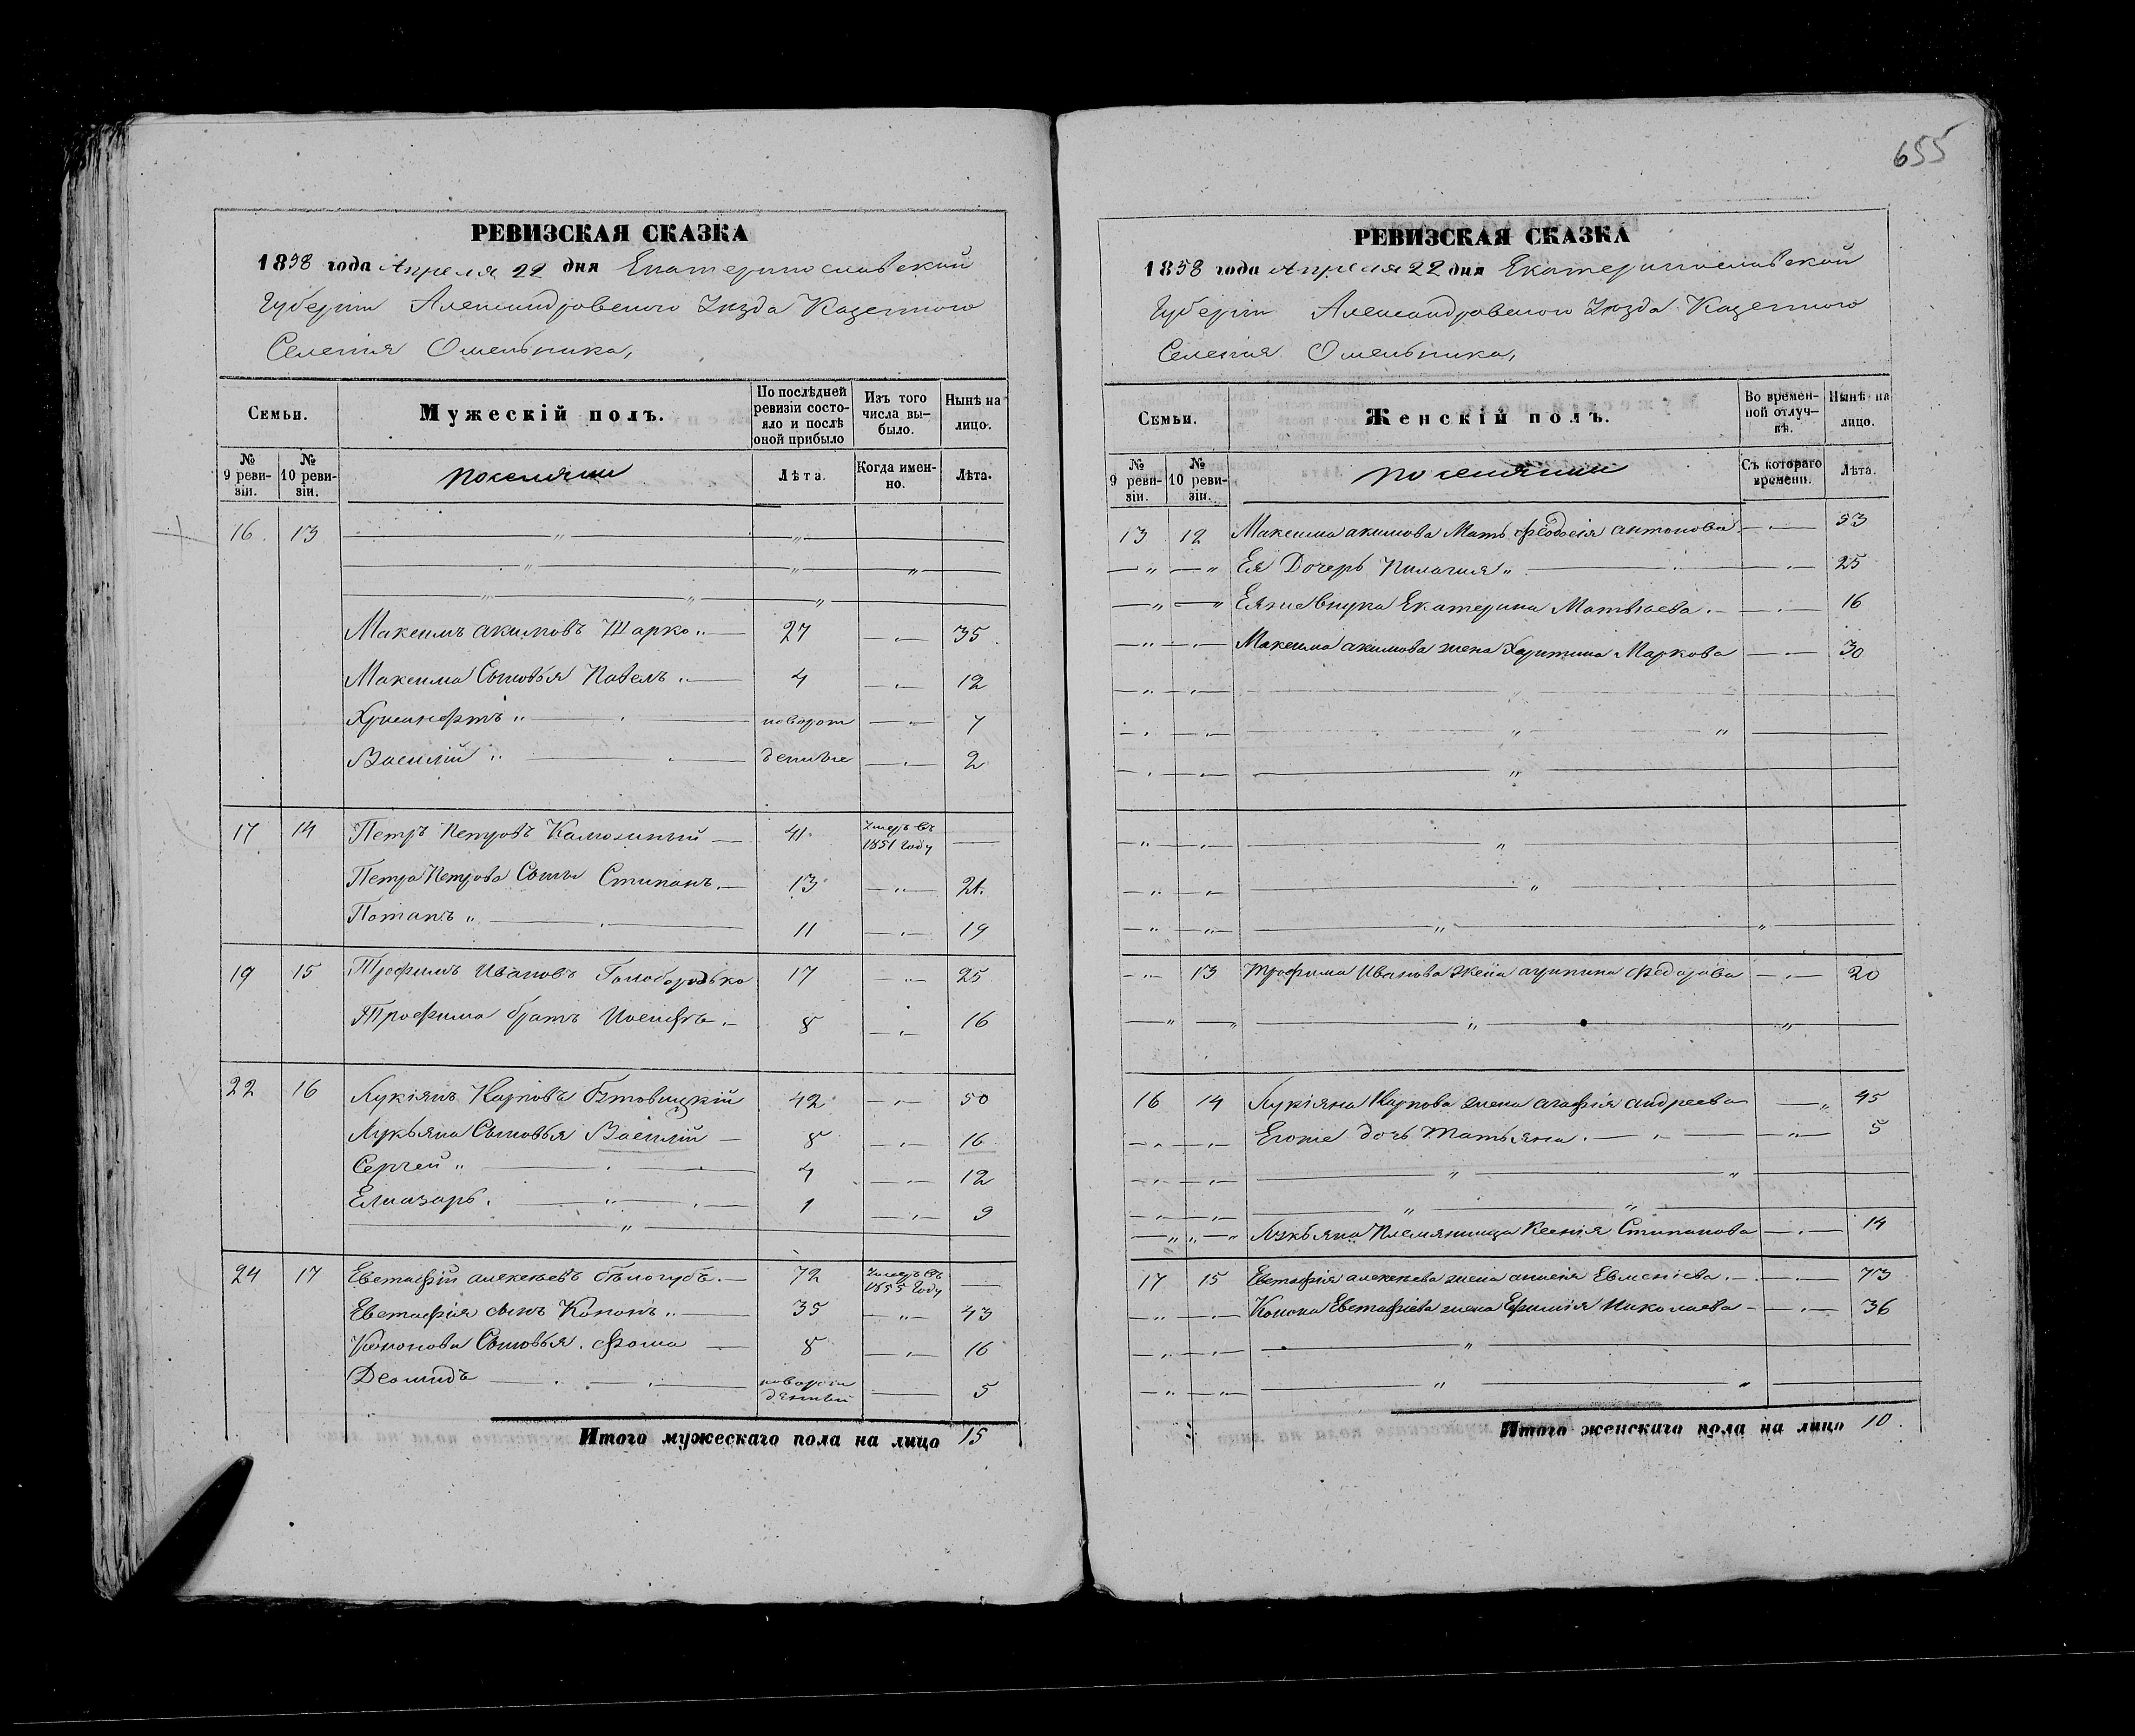 655
РЕВИЗСКАЯ СКАЗКА
1858 года Апреля 22 дня Екатеринославской
Губерніи Александровского Уѣзда Казенного
Селенія Омельника,
Семьи.
Мужескій полъ.
По послѣдней ревизіи состояло и послѣ оной прибыло
Изъ того числа выбыло.
Нынѣ на лицо.
№ 9 ревизіи.
№ 10 ревизіи.
поселяни
Лѣта.
Когда именно.
Лѣта.
16 13
Максимъ акимовъ Шарко 27 35
Максима Сыновья Павелъ 4 12
Хрисанфтъ новорож 7
Василій денные 2
17 14 Петръ Петровъ Калюжный 41 Умеръ въ 1851 году
Петра Петрова Сыны Стипанъ 13 21
Потапъ 11 19
19 15 Трофимъ Ивановъ Голобородько 17 25
Трофима братъ Иосифъ 8 16
22 16 Лукіянъ Карповъ 42 50
Лукьяна Сыновья Василій 8 16
Сергей 4 12
Елиазаръ 1 9
24 17 Евстафій алексеевъ бѣлогубъ 72 Умеръ въ 1855 году
Евстафія сынъ Кононъ 35 43
Кононова Сыновья Фома 8 16
Деомидъ новорож денный 5
Итого мужескаго пола на лицо 15
РЕВИЗСКАЯ СКАЗКА
1858 года Апреля 22 дня Екатеринославской
Губерніи Александровского Уѣзда Казенного
Селенія Омельника,
Семьи.
Женскій полъ.
Во временной отлучкѣ.
Нынѣ на лицо.
№ 9 ревизіи.
№ 10 ревизіи.
поселянии
Съ котораго времени.
Лѣта.
13 12 Максима акимова Мать феодосія антонова 53
Ея Дочерь Пилагия 25
Ея же внука Екатерина Матвѣева 16
Максима акимова жена Харитина Маркова 30
13 Трофима Иванова жена агрипина федорова 20
16 14 Лукіяна Карпова жена агафія андреева 45
Его же дочь Татьяна 5
Лукьяна Племянница Ксенія Стипанова 14
17 15 Евстафія алексеева жена Евменіева 73
Конона Евстафіева жена Ефимія Николаева 36
Итого женскаго пола на лицо 10